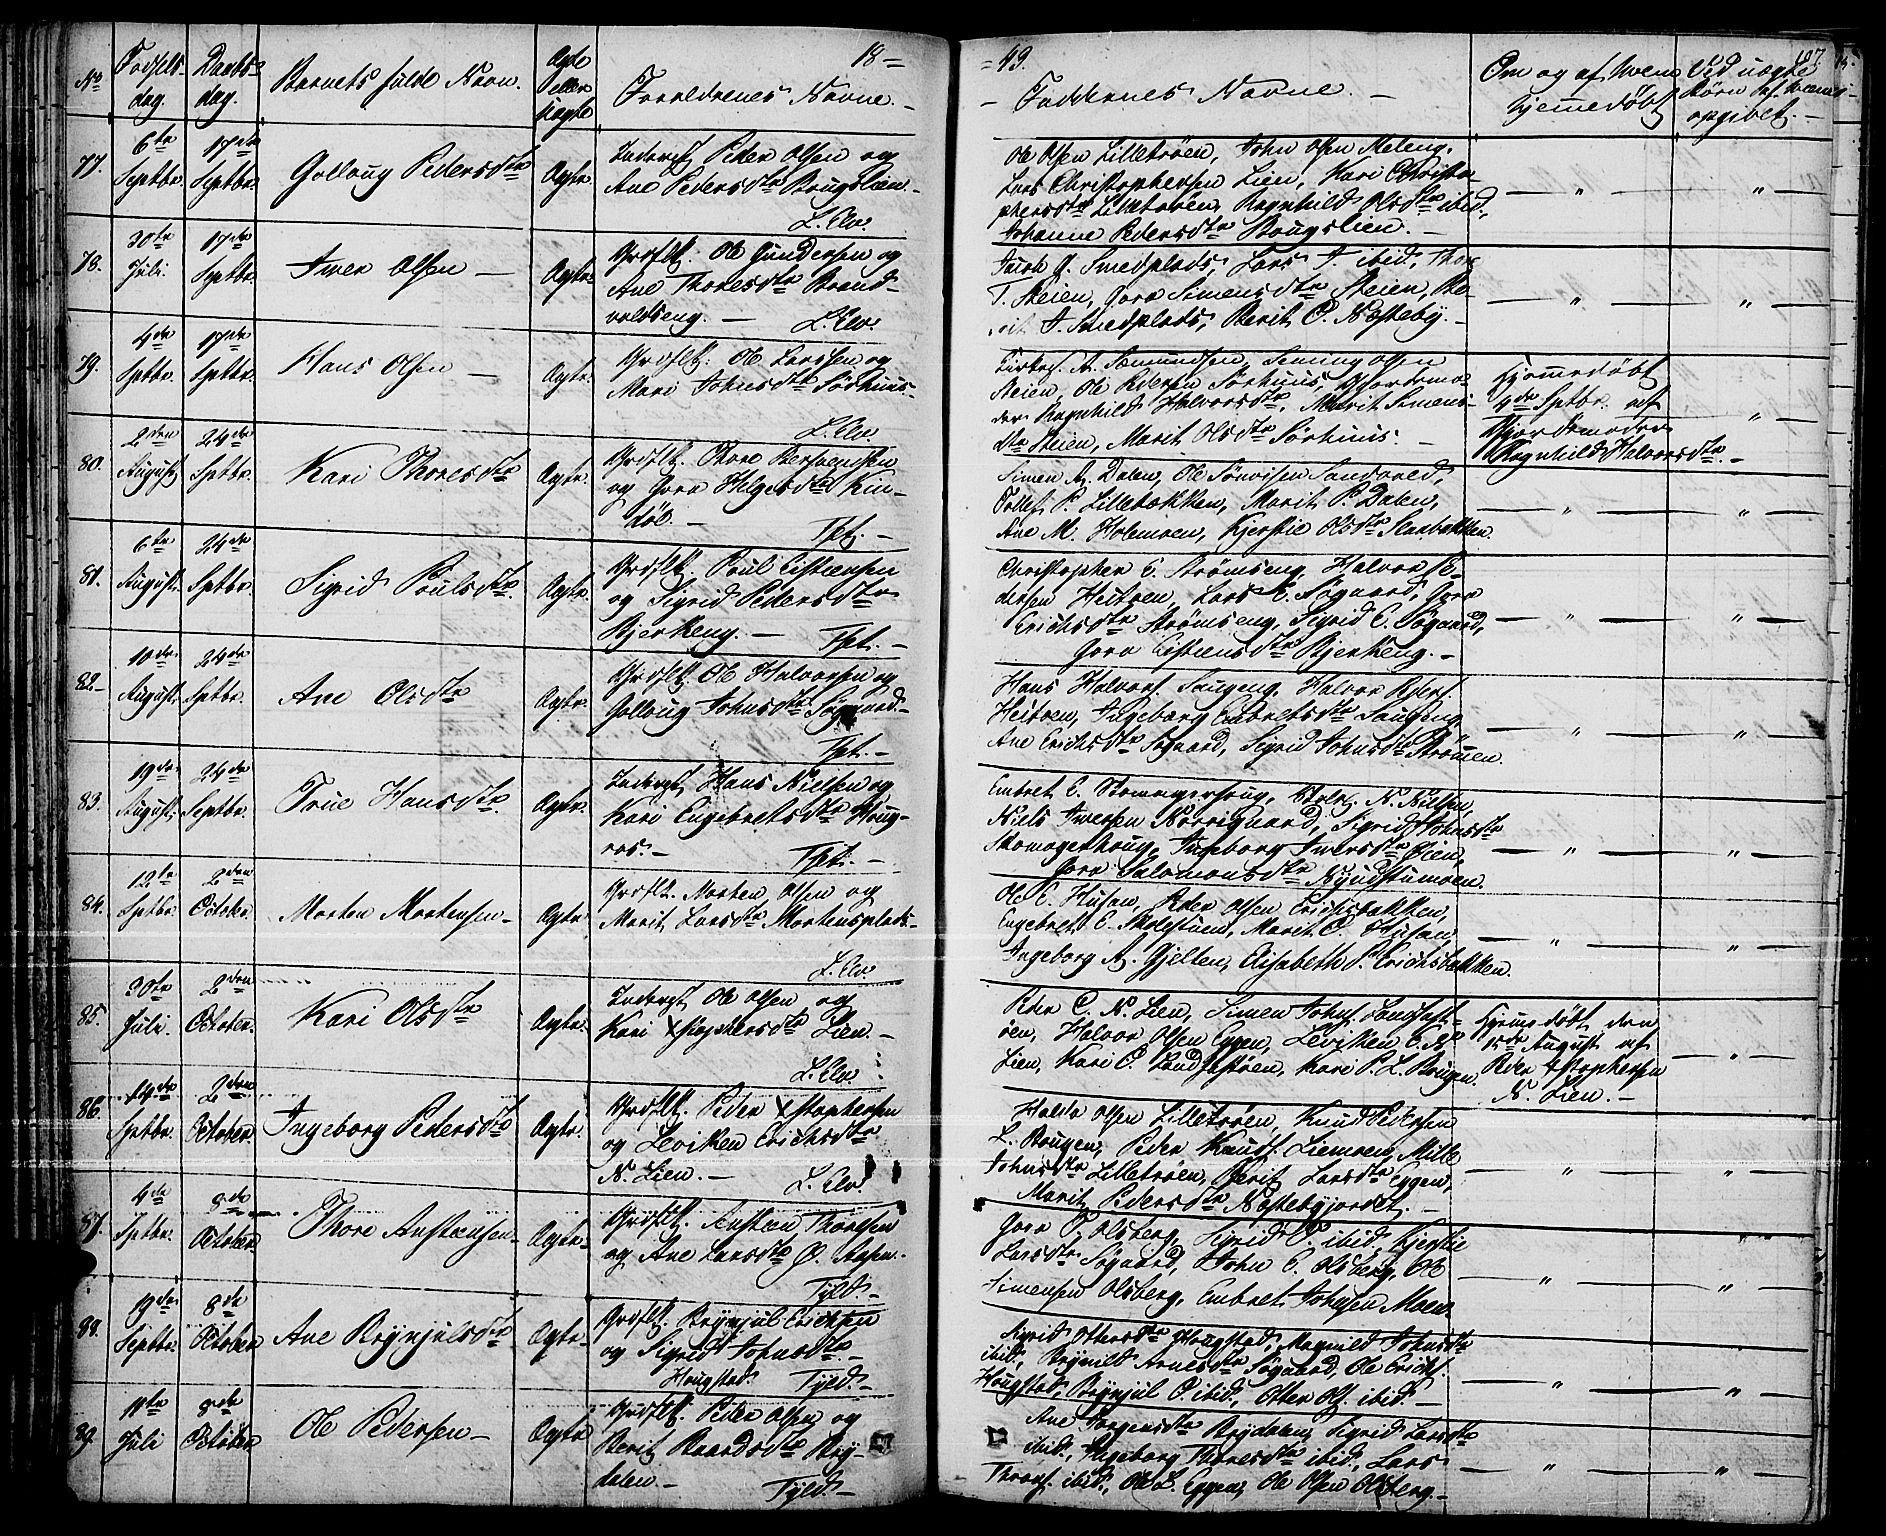 18 = = 49. 107.
No Fødsels- dag. Daabs- dag. Barnets fulde Navn. Ægte eller Uægte Forældrenes Navne. – – Faddernes Navne. – Om og af hvem hjemmedøbt Ved uægte Børn opgivet. –
77. 6te Septbr. 17de Septbr. Golloug Pedersdtr Ægte. Inderst Peder Olsen og
Ane Pedersdtr Brugslien. –
L. Elv.
Ole Olsen Lilletrøen, John Olsen Meleng,
Lars Christophersen Lien, Kari Christo-
phersdtr Lilletrøen, Ragnhild Olsdtr ibid,
Johanne Pedersdtr Brugslien. –
78. 30te Juli. 17de Septbr. Iver Olsen – Ægte. Grdflk. Ole Gundersen og
Ane Thoresdtr Brand-
voldseng. – L. Elv.
Jacob J. Smedplads, Lars J. ibid, Thor
T. Steien, Goro Simensdtr Steien, Be-
rit J. Smedplads, Berit O. Nesteby. –
79. 4de Sptbr. 17de Sptbr. Hans Olsen – Ægte. Grdflk: Ole Larssen og
Mari Johnsdtr Sørhuus. –
L. Elv.
A. Samundsen, Siming Olsen
Steien, Ole Pedersen Sørhuus, Gjordemo-
der Ragnhild Halvorsdtr, Marit Simens-
dtr Steien, Marit Olsdtr Sørhuus. –
Hjemmedøbt
4de Sptbr. af
Gjordemoder
Ragnhild Halvorsdtr. –
80. 2den August 24de Sptbr. Kari Thoresdtr Ægte. Grdflk. Thore Bersvendsen
og Goro Helgesdtr Kin-
døl. –
Tpt. –
Simen A. Dalen, Ole Sandvold,
Tollef P. Lillebækken, Marit P. Dalen,
Ane M. Holemoen, Kjerstie Olsdtr
81. 6te August. 24de Sptbr. Sigrid Poulsdtr. Ægte. Grdflk. Poul Estensen
og Sigrid Pedersdtr
Bjerkeng. – Tpt. –
Christopher E. Strømseng, Halvor Pe-
dersen Heitøen, Lars E. Søgaard, Goro
Erichsdtr Strømseng, Sigrid E. Søgaard,
Goro Estensdtr Bjerkeng. –
82. – 10de August. 24de Sptbr. Ane Olsdtr Ægte. Grdflk. Ole Halvorsen og
Golloug Johnsdtr Søgaard. –
Tpt. –
Hans Halvors. Saugeng, Halvor
Heitøen, Ingeborg Embretsdtr Saugeng
Ane Erichsdtr Søgaard, Sigrid Johnsdtr Strømen.
83. 19de August. 24de Septbr. True Hansdtr Ægte. Inderst Hans Nielsen og
Kari Engebretsdtr Houg-
ros. –
Tpt. –
Embret E. Skomagerhoug, N. Nielsen,
Niels Iversen Norrigaard, Sigrid Johnsdtr
Skomagerhoug, Ingeborg Iversdtr Øien,
Goro Salomonsdtr
84. 12te Sptbr. 2den October. Morten Mortensen – Ægte Grdflk. Morten Olsen og
Marit Larsdtr Mortensplads. –
L. Elv.
Ole E. Husan, Peder Olsen Erichsbakken,
Engebret E. Marit E. Husan,
Ingeborg A. Gjelten, Elisabeth P. Erichsbakken.
85. 30te Juli. 2den October. Kari Olsdtr Ægte. Inderst Ole Olsen og
Kari Xstophersdtr Lien. –
L. Elv.
Peder C. N. Lien, Simen Johns. Landsest-
øen, Halvor Olsen Eggen, Leviken E. N.
Lien, Kari O. Landsestøen, Kari P. L. Brugen.
Hjemmedøbt den
15de August af
Peder Xstophersen
N. Lien. –
86. 14de Sptbr. 2den October Ingeborg Pedersdtr Ægte. Grdflk. Peder Xstophersen
og Leviken Erichsdtr
N. Lien. – L. Elv.
Halvor Olsen Lilletrøen, Knud Pedersen
L. Brugen, Peder Knuds. Liemoen, Mille
Johnsdtr Lilletrøen, Berit Larsdtr Eggen,
Marit Pedersdtr Nestebyjordet. –
87. 4de Sptbr. 8de October Thore Anstensen – Ægte – Grdflk. Ansten Thoresen
og Ane Larsdtr Ø.
Tyld. –
Goro T. Olsberg, Sigrid T. ibid, Kjerstie
Larsdtr Søgaard, John E. Olsberg, Ole
Simensen Olsberg, Embret Johnsen Moen.
88. 19de Septbr. 8de October Ane Brynjulsdtr Ægte. Grdflk. Brynjul Erichsen
og Sigrid Johnsdtr –
Hougstad. Tyld. –
Sigrid Ottersdtr Hougstad, Magnild Johnsdtr
ibid, Brynild Arnesdtr Søgaard, Ole Erichs.
Hougstad, Brynjul O. ibid., Otter Ols. ibid. –
89. 11te Juli 8de October Ole Pedersen – Ægte Grdflk. Peder Olsen og
Berit Baardsdtr Bry-
dalen – Tyld. –
Ane Jørgensdtr Brydalen, Sigrid Larsdtr
ibid., Ingeborg Thoresdtr ibid., Lars
Thores. ibid., Ole L. Eggen, Ole Olsen Olsberg. –